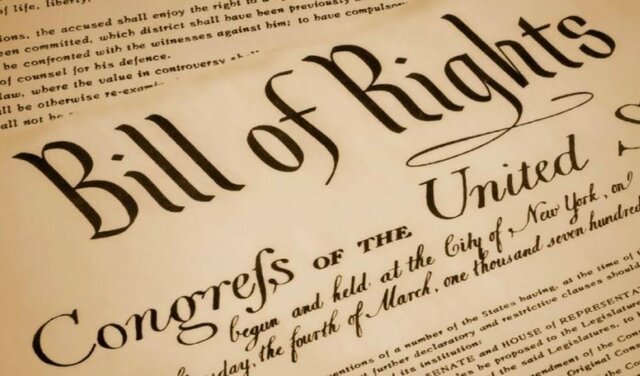 of life, liberty,
ions, the accused shall enjoy the right to a
een committed, which district shall have been previously a
be confronted with the witnesses against him; to have compulsor
of counsel for his defence.
law, where the value in controversy shall
ll be otherwise re-exam
all not be
Bill of Rights
Congreſs OF THE United S
begun and held at the City of New York, on
day, the fourth of March, one thousand seven hundred
entions of a number of the States having, at the time of
further declaratory and restrictive clauses should
its institution:
SENATE and HOUSE of REPRESENTA
be proposed to the Legislatur
of the said Legislatures, to
endment of the Con
Original Const